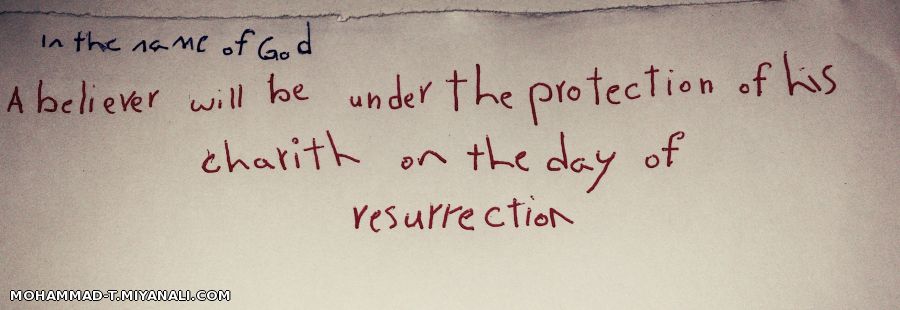 In the name of God
A believer will be under the protection of his
charith on the day of
resurrection
MOHAMMAD-T.MIYANALI.COM